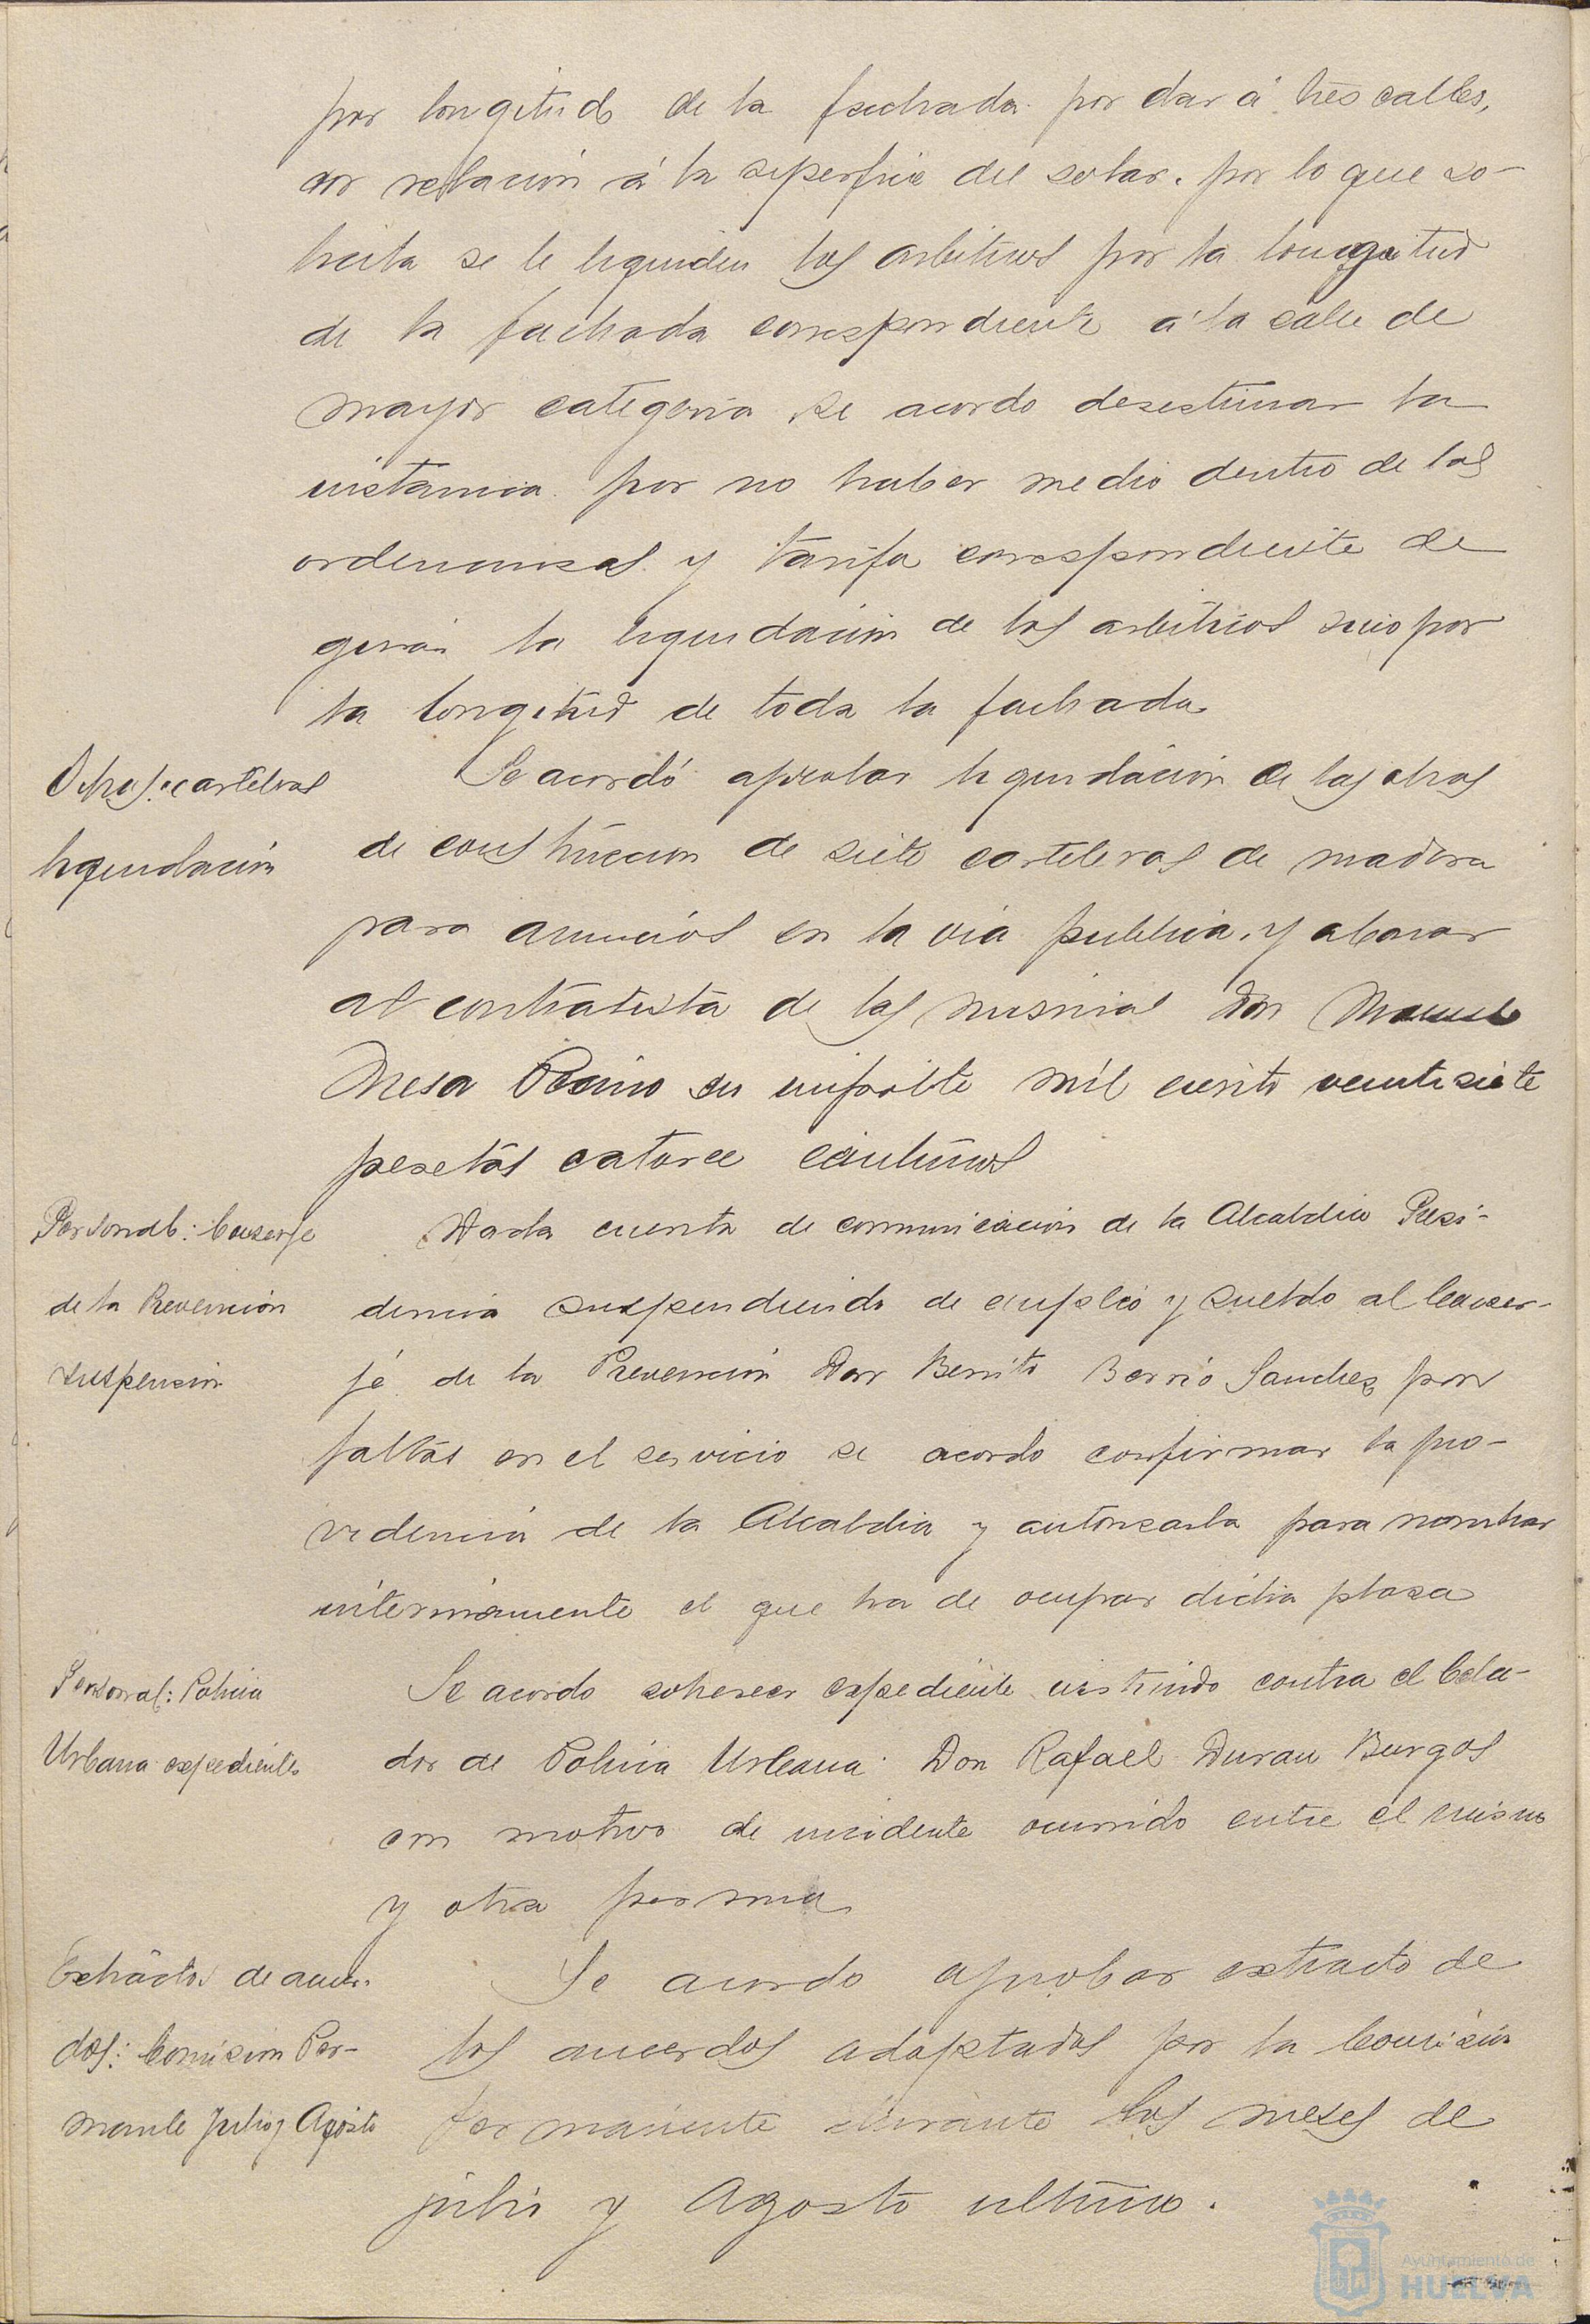 por longitud de la fachada por dar á tres calles,
con relación á la superficie del solar, por lo que so-
licita se le liquiden los arbitrios por la longitud
de la fachada correspondiente á la calle de
mayor categoria se acordo desestimar la
instancia por no haber medio dentro de las
ordenanzas y tarifa correspondiente de
girar la liquidación de los arbitrios sino por
la longitud de toda la fachada
Obras: carteleras
liquidación
Se acordó aprobar liquidación de las obras
de construccion de siete carteleras de madera
para anuncios en la via publica, y abonar
al contratista de las mismas Don Manuel
Mesa su importe mil ciento veintisiete
pesetas catorce centimos
Personal: Conserje
de la Prevención
suspensión
Dada cuenta de comunicación de la Alcaldia Presi-
dencia suspendiendo de empleo y sueldo al Conser-
je de la Prevención Don Benito Berrio Sanchez por
faltas en el servicio se acordo confirmar la pro-
videncia de la Alcaldia y autorizarla para nombrar
interinamente el que ha de ocupar dicha plaza
Personal: Policia
Urbana expediente
Se acordo sobreseer expediente instruido contra el Cela-
dor de Policia Urbana Don Rafael Duran Burgos
con motivo de incidente ocurrido entre el mismo
y otra persona
Extractos de acuer-
dos: Comision Per-
manente Julio y Agosto
Se acordo aprobar extracto de
los acuerdos adoptados por la Comisión
Permanente durante los meses de
julio y Agosto ultimo.
Ayuntamiento de
HUELVA